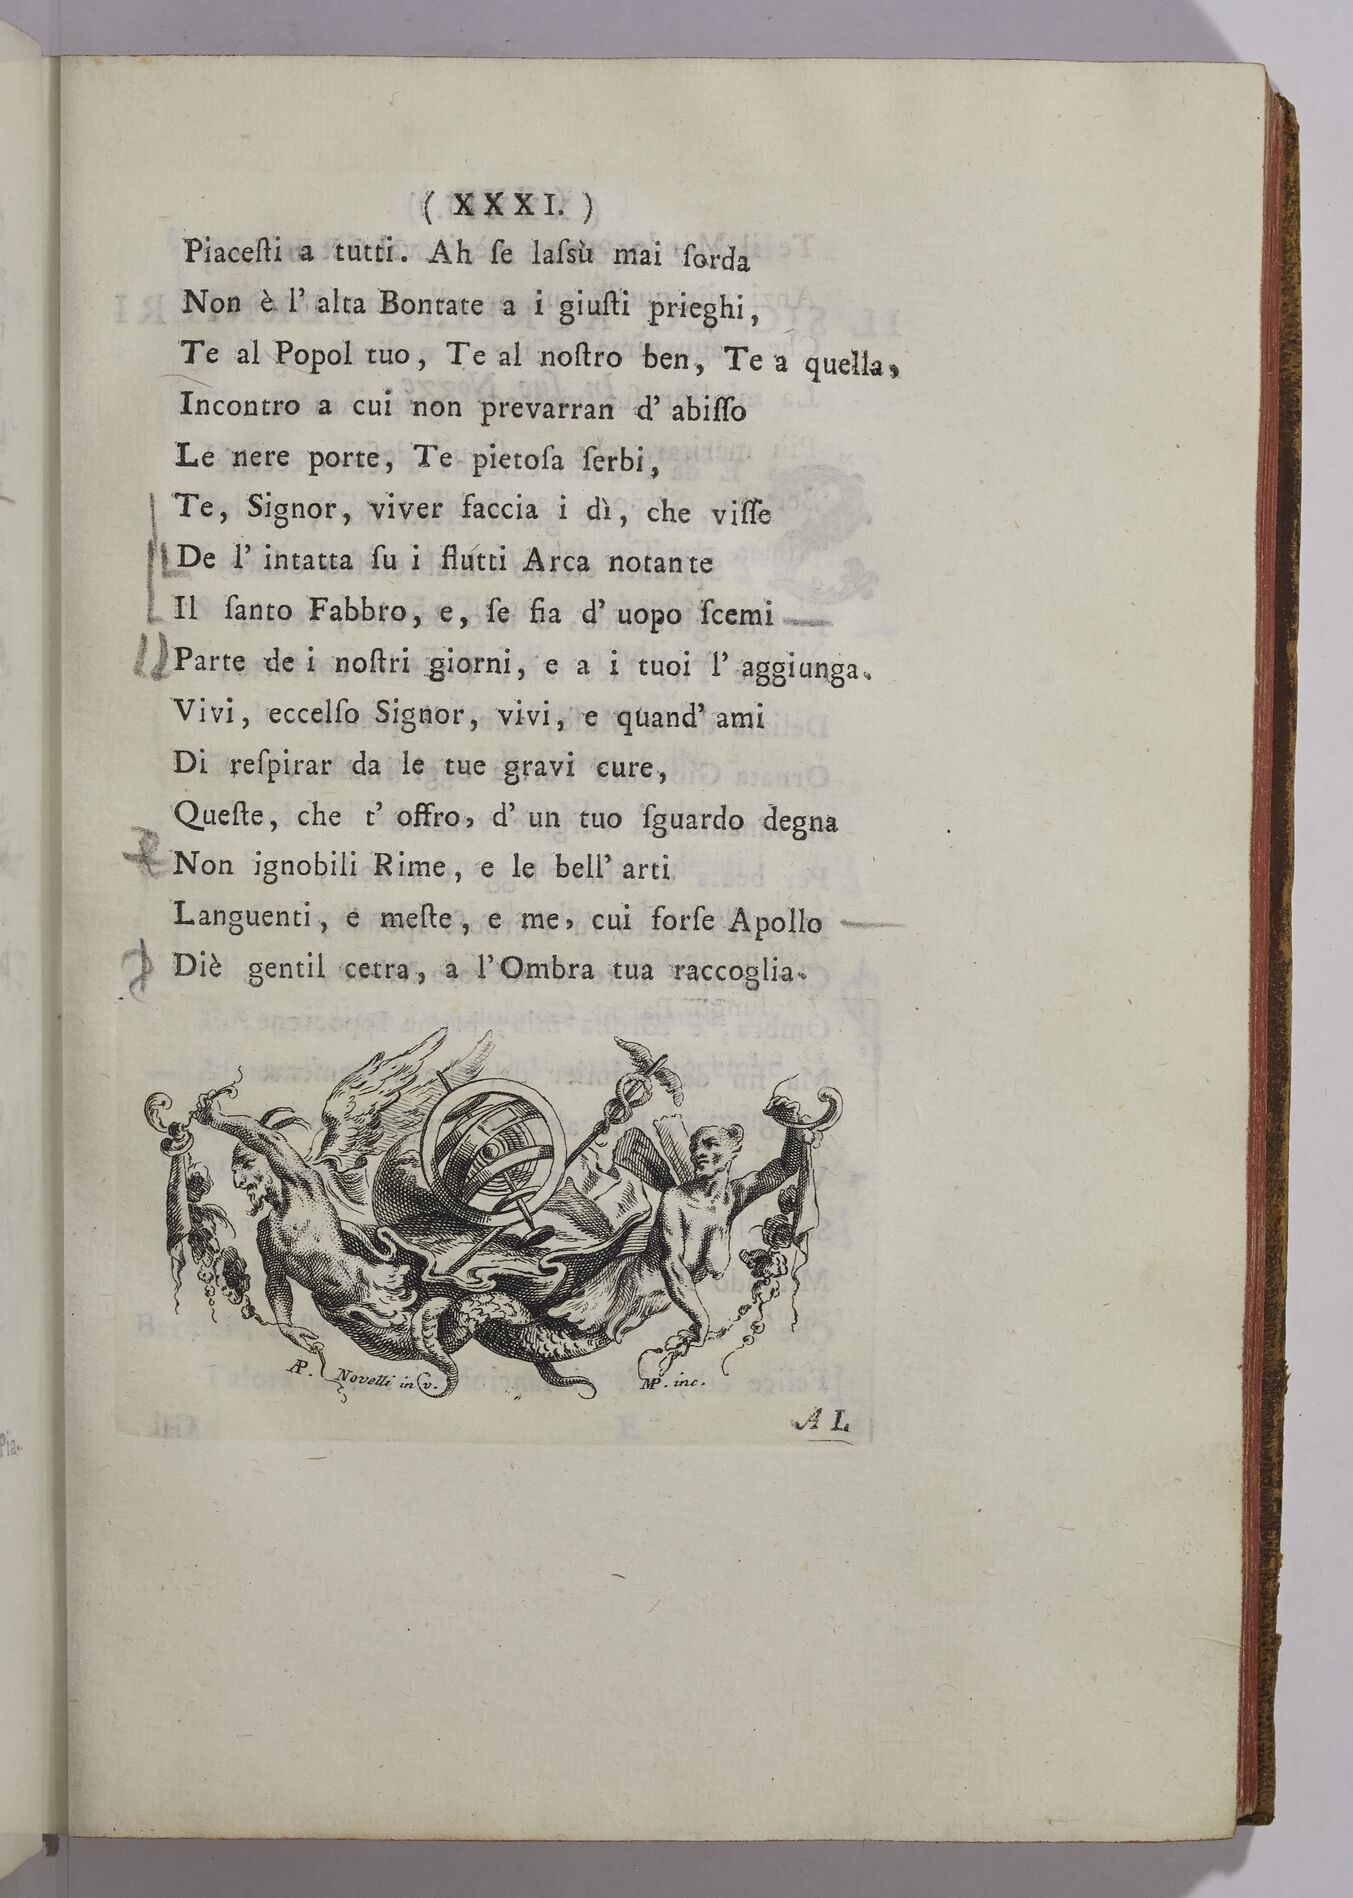 ( XXXI. )
Piaceſti a tutti. Ah ſe laſsù mai ſorda
Non è l' alta Bontate a i giuſti prieghi,
Te al Popol tuo, Te al noſtro ben, Te a quella,
Incontro a cui non prevarran d' abiſſo
Le nere porte, Te pietoſa ſerbi,
Te, Signor, viver faccia i dì, che viſſe
De l' intatta ſu i flutti Arca notante
Il ſanto Fabbro, e, ſe fia d' uopo ſcemi
Parte de i noſtri giorni, e a i tuoi l' aggiunga.
Vivi, eccelſo Signor, vivi, e quand' ami
Di reſpirar da le tue gravi cure,
Queſte, che t' offro, d' un tuo ſguardo degna
Non ignobili Rime, e le bell' arti
Languenti, e meſte, e me, cui forſe Apollo
Diè gentil cetra, a l'Ombra tua raccoglia.
AP. Novelli inv.
MP. inc.
AL
Pia-